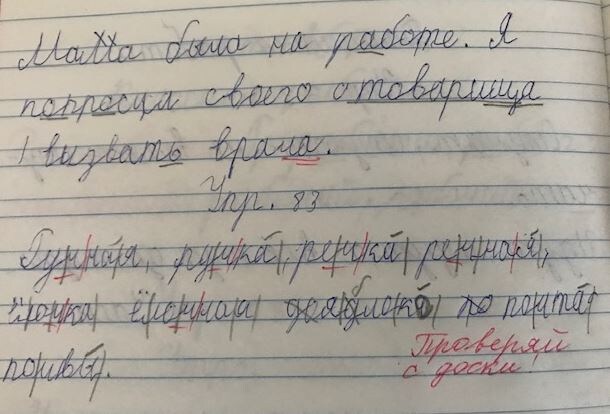 Мама была на работе. Я
попросил своего товарища
вызвать врача.
Упр. 83
Ручная, ручка, речка речная,
ёлочка ёлочная яблоко по почта
Проверяй
с доски